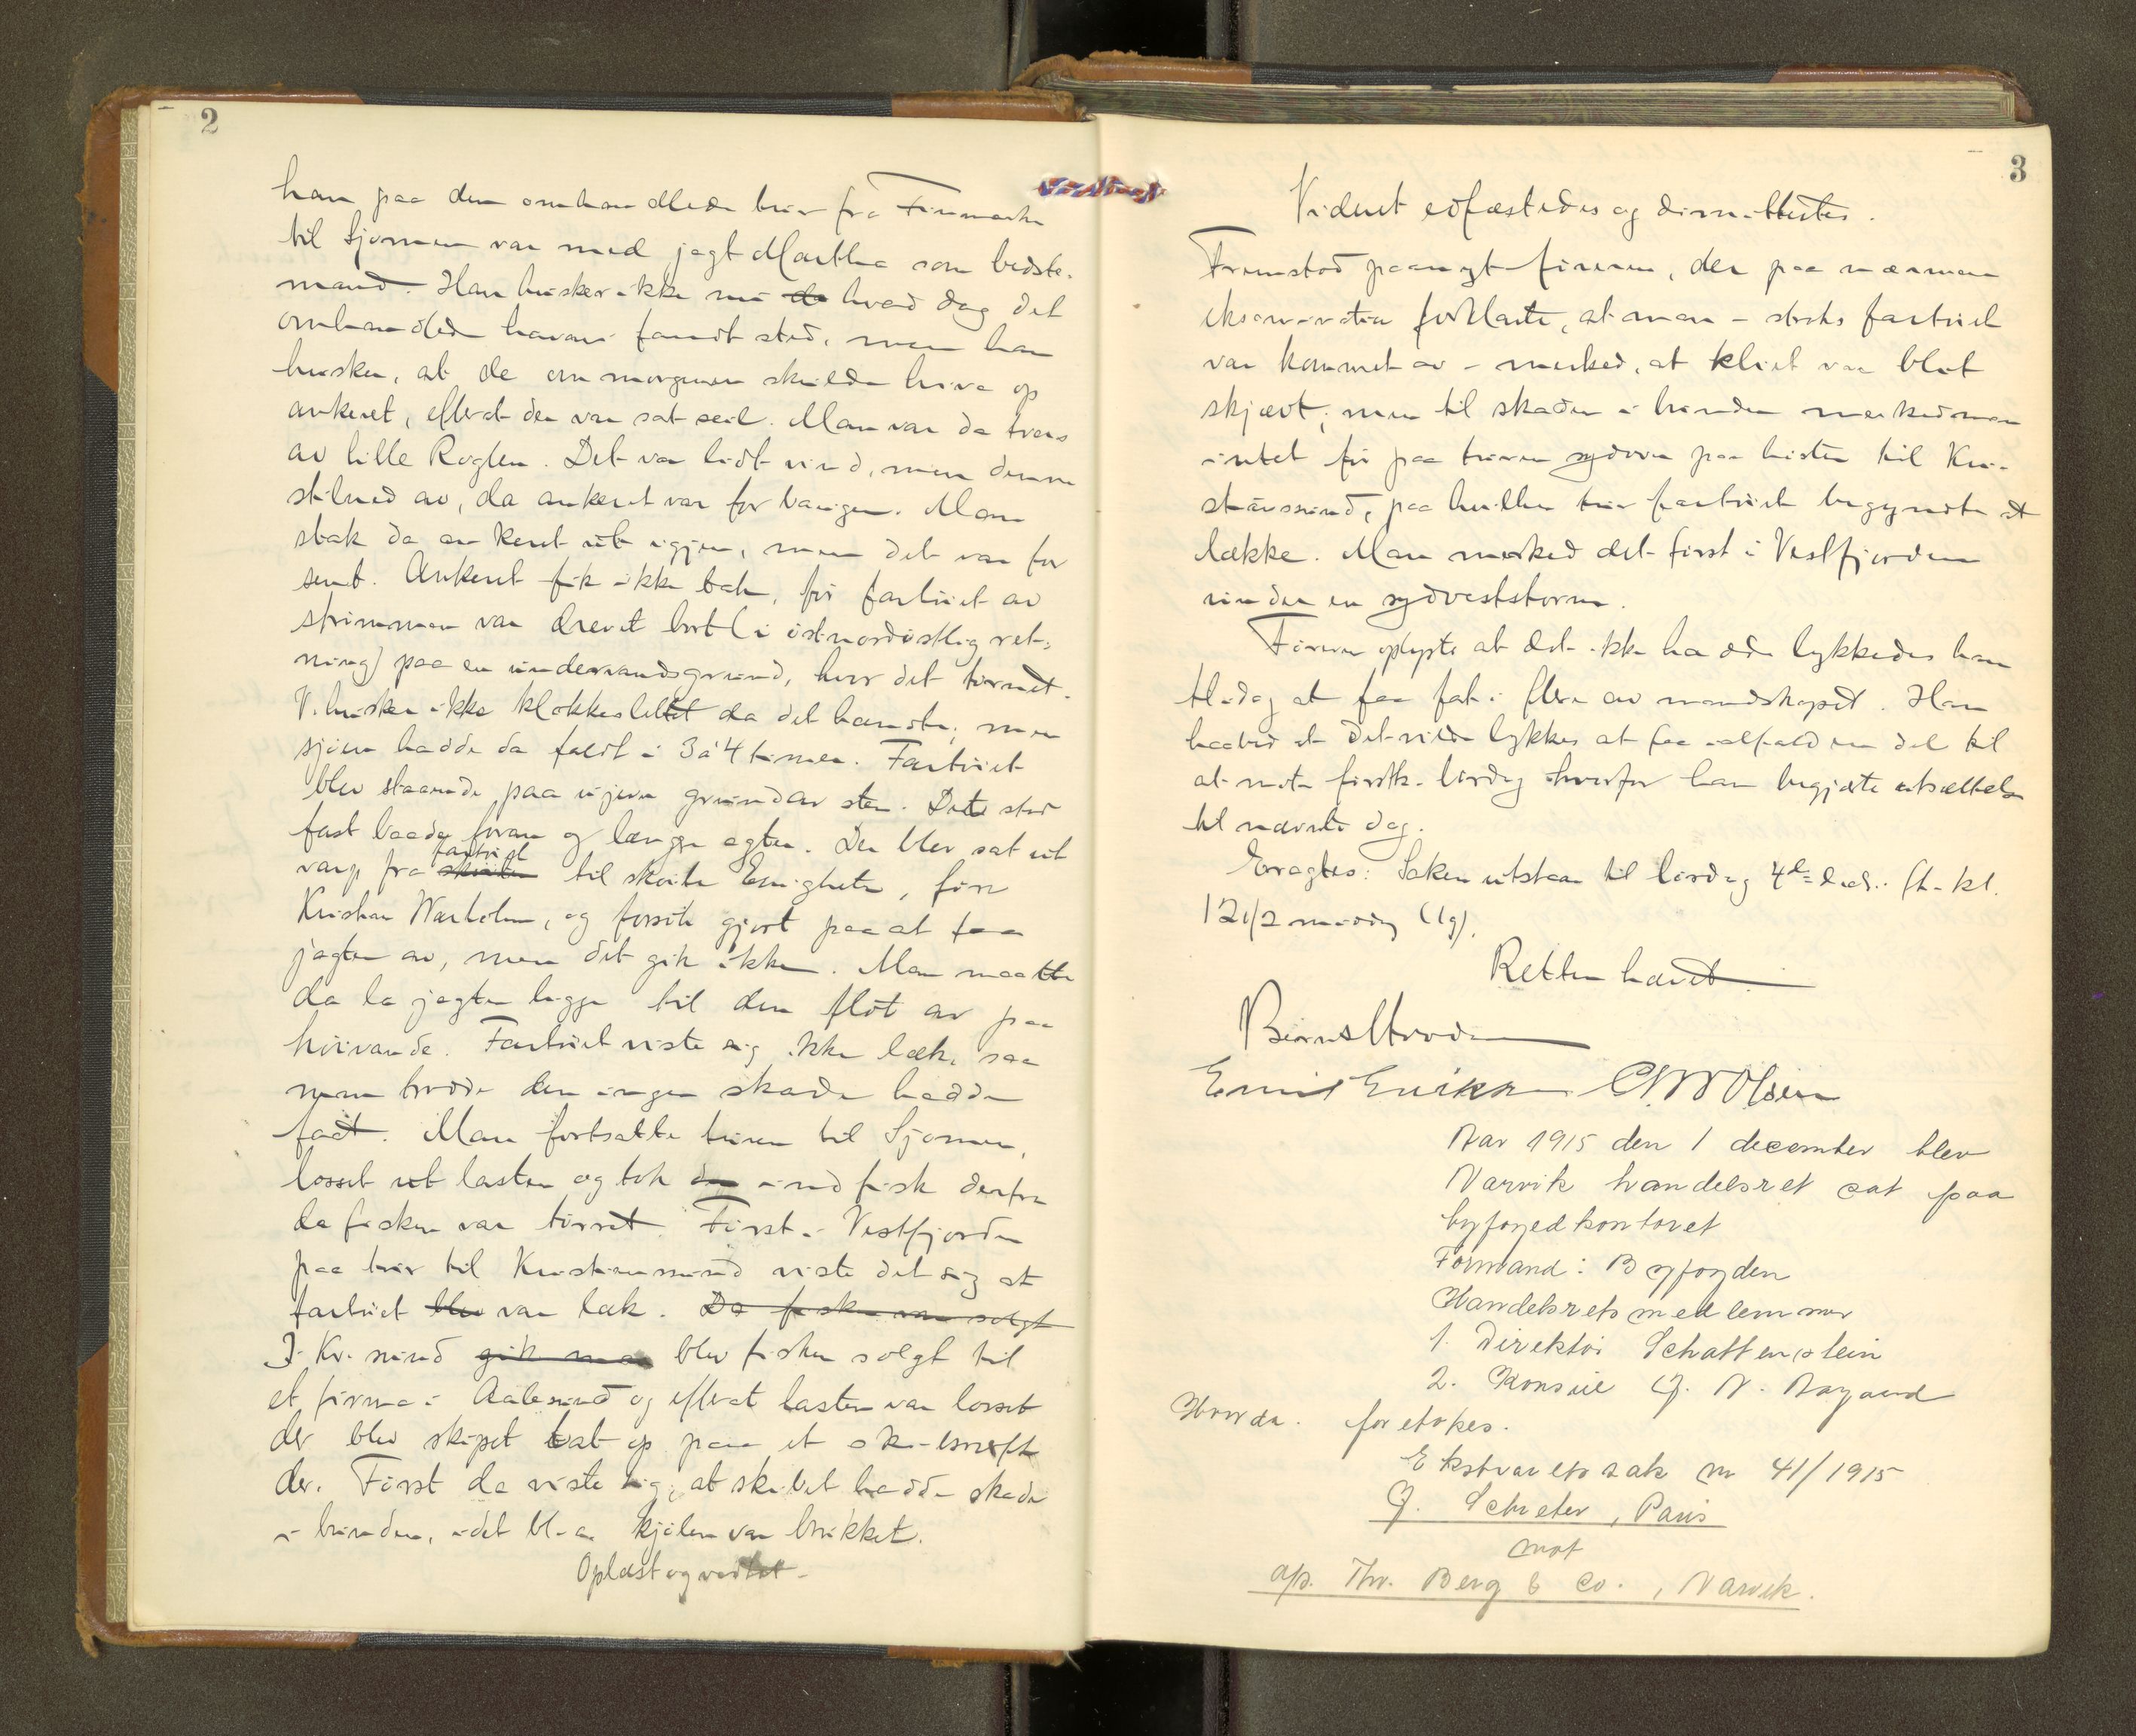 2
han paa den omhandlede tur fra Finmarken
til Sjomen var med jagt Martha som bedste-
mand. Han husker ikke nu de hvad dag det
omhandlede havari fandt sted, men han
husker, at de om morgenen skulde hive op
ankeret, efterat der var sat seil. Man var da tvers
av lille Roglen. Det var lidt vind, men denne
stilned av, da ankeret var for baugen. Man
stak da ankeret ut igjen, men det var for
sent. Ankeret fik ikke tak, før fartøiet av
strømmen var drevet bort (i østnordøstlig ret-
ning) paa en undervandsgrund, hvor det tørnet.
V. husker ikke klokkeslettet da det hændte, men
sjøen hadde da faldt i 3 à 4 timer. Fartøiet
blev staaende paa ujevn grund av sten. Det stod
fast baade foran og længer agter. Der blev sat ut
varp fra skøiten fartøiet til skøite Enigheten, fører
Kristian Warholm, og forsøk gjort paa at faa
jagten av, men det gik ikke. Man maatte
da la jagten ligge til den fløt av paa
høivande. Fartøiet viste sig ikke læk, saa
man trodde den ingen skade hadde
fåt. Man fortsatte turen til Sjomen,
losset ut lasten og tok den ind fisk derfra
da fisken var tørret. Først i Vestfjorden
paa tur til Kristianssund viste det sig at
fartøiet blev var læk. Da fisken var solgt
I Kr.sund gik man blev fisken solgt til
et firma i Aalesund og efterat lasten var losset
der blev skipet tat op paa et skibsverft
der. Først da viste sig, at skibet hadde skade
i bunden, idet bl.a. kjølen var brukket.
Oplæst og vedtat.
3
Vidnet edfæstedes og dimittertes.
Fremstod paanyt føreren, der paa nærmere
eksamination forklarte, at man - straks fartøiet
var kommet av - merked, at kliet var blet
skjævt; men til skaden i bunden merked man
intet før paa turen sydover paa høsten til Kri-
stianssund, paa hvilken tur fartøiet begyndte at
lække. Man merked det først i Vestfjorden
under en sydveststorm.
Føreren oplyste at det ikke hadde lykkedes ham
til idag at faa fat i flere av mandskapet. Han
haabed at det vilde lykkes at faa ialfald en del til
at møte førstk. lørdag hvorfor han begjærte utsættelse
til nævnte dag.
Eragtes: Saken utstaar til lørdag 4de ds. kl.
12 1/2 middag
Retten hævet
Emil Eriksen Olsen
Aar 1915 den 1 december blev
Narvik handelsret sat paa
byfogedkontoret
Formand: Byfogden
Handelsretsmedlemmer
1. Direktør Schattenstein
2. Konsul N. Aagaard
Hvorda. foretokes.
Ekstraretssak nr 41/1915
Schreter, Paris
mot
ap. Thv. Berg & Co., Narvik.